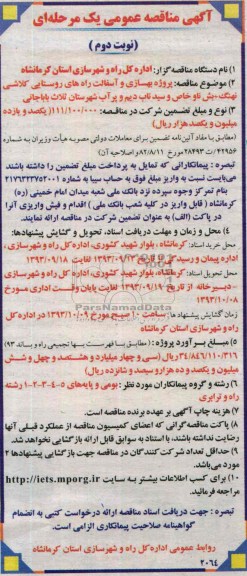 آگهی مناقصه عمومی یک مرحله‌ای
(نوبت دوم)
۱) نام دستگاه مناقصه‌گزار: اداره کل راه و شهرسازی استان کرمانشاه
۲) موضوع مناقصه: پروژه بهسازی و آسفالت راه های روستایی کلاشی
تهنگ-بش ناو خاص و سید ناب دیم و پرآب شهرستان ثلاث باباجانی
۳) نوع و مبلغ تضمین شرکت در مناقصه: ۱۱۱/۱۰۰/۰۰۰( یکصد و یازده
میلیون و یکصد هزار ریال)
(مطابق با مفاد آئین‌نامه تضمین برای معاملات دولتی مصوبه هیأت وزیران به شماره
۴۲۹۵۶/ت ۲۸۴۹۳ مورخ ۸۲/۸/۱۱ و اصلاحیه آن)
تبصره : پیمانکارانی که تمایل به پرداخت مبلغ تضمین را داشته باشند
می‌بایست نسبت به واریز مبلغ فوق به حساب سیبا به شماره ۲۱۷۹۳۳۳۷۵۲۰۰۱
بنام تمرکز وجوه سپرده نزد بانک ملی شعبه میدان امام خمینی (ره)
کرمانشاه ( قابل واریز در کلیه شعب بانک ملی ) اقدام و فیش واریزی آنرا
در پاکت (الف) به عنوان تضمین شرکت در مناقصه ارائه نمایند.
۴) محل و زمان و مهلت دریافت اسناد، تحویل و گشایش پیشنهادها:
محل خرید اسناد: کرمانشاه، بلوار شهید کشوری، اداره کل راه و شهرسازی،
اداره پیمان و رسیدگی از تاریخ ۱۳۹۳/۰۹/۱۳ لغایت ۱۳۹۳/۰۹/۱۸
محل تحویل اسناد: کرمانشاه، بلوار شهید کشوری، اداره کل راه و شهرسازی
- دبیرخانه از تاریخ ۱۳۹۳/۰۹/۱۹ لغایت پایان وقت اداری مورخ
۱۳۹۳/۱۰/۰۸
زمان گشایش پیشنهادها : ساعت ۱۰ صبح مورخ ۱۳۹۳/۱۰/۰۹ در اداره کل
راه و شهرسازی استان کرمانشاه
۵) مبلغ برآورد پروژه : (مطابق با فهرست بها تجمیعی راه و باند ۹۳)
۳۴/۸۴۶/۱۱۰/۳۱۶ریال (سی و چهار میلیارد و هشتصد و چهل و شش
میلیون و یکصد و ده هزار و سیصد و شانزده ریال)
۶) رشته و گروه پیمانکاران مورد نظر : بومی و پایه‌های ۵-۴-۳-۲-۱ رشته
راه و ترابری
۷) هزینه چاپ آگهی بر عهده برنده مناقصه است.
۸) پاکت مناقصه‌گرانی که اعضای کمیسیون مناقصه از عملکرد قبلی آنها
رضایت نداشته باشند، با استناد به سوابق قابل ارائه بازگشایی نخواهد شد.
۹) حداقل تعداد شرکت کنندگان در مناقصه جهت بازگشایی پیشنهادها ۲
مورد می‌باشد.
۱۰) برای کسب اطلاعات بیشتر به سایت http://iets.mporg.ir
مراجعه فرمائید.
تبصره : جهت دریافت اسناد مناقصه ارائه درخواست کتبی به انضمام
گواهینامه صلاحیت پیمانکاری الزامی است.
روابط عمومی اداره کل راه و شهرسازی استان کرمانشاه
۲۰۶۴